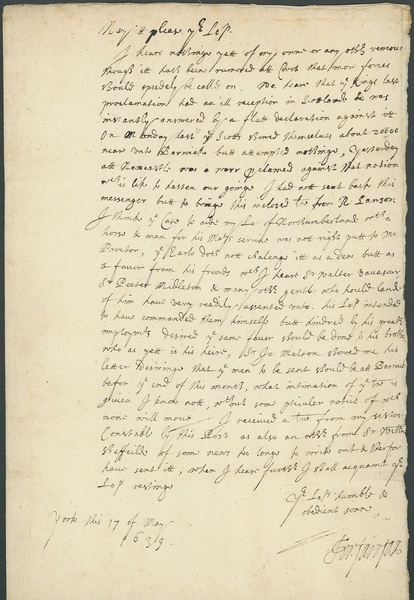 May it please yr Lop.
I heare nothinge yett of my, orme or any othr remove
though itt hath been rumored att Court that mor forces
should speedely be calld on. We heare that ye Kings last
proclamation had an ill reception in Scotland & was
instantly answered by a flatt declaration against itt
On Munday last ye Scotts shewed themselues about 20000
neare unto Barwick butt attempted nothinge, Yesterday
att Newcastle was a warr proclamed against that nation
wch is like to hasten our goinge I had nott sent back this
messenger butt to bringe this inclosed from R: Lanson
I thinke ye Case to aide my Lo: of Northumberland with a
horse & man for his Matys service was nott right putt to Mr
Proctor, ye Earle doth nott chalenge itt as a dew butt as
a favor from his frends wch I heare Sr Walter Vavasour
Sr Peeter Midleton & many othr gentle: who hould lande
of him have very readily assented unto. his Lop intended
to have commanded them himselfe butt hindred by his greatr
imploymts desired ye same favor should be done to his brothr
who as yett is his heire, Sr Jo: Melton shewed me his
letter desiringe that ye men to be sent should be att Barwick
befor ye end of this month, what intimation of ye is
given I know nott, without some pticuler notice of wch
none will move I received a from my sister
Constable by this Post as also an othr from Sr Will:
Sheffeild of some news too longe to write out & therfor
have sent itt, when I heare further I shall acquaint yr
Lop restinge
Yr Lops humble &
obedient sonne
York this 17 of May
1639
Fer: Fairfax